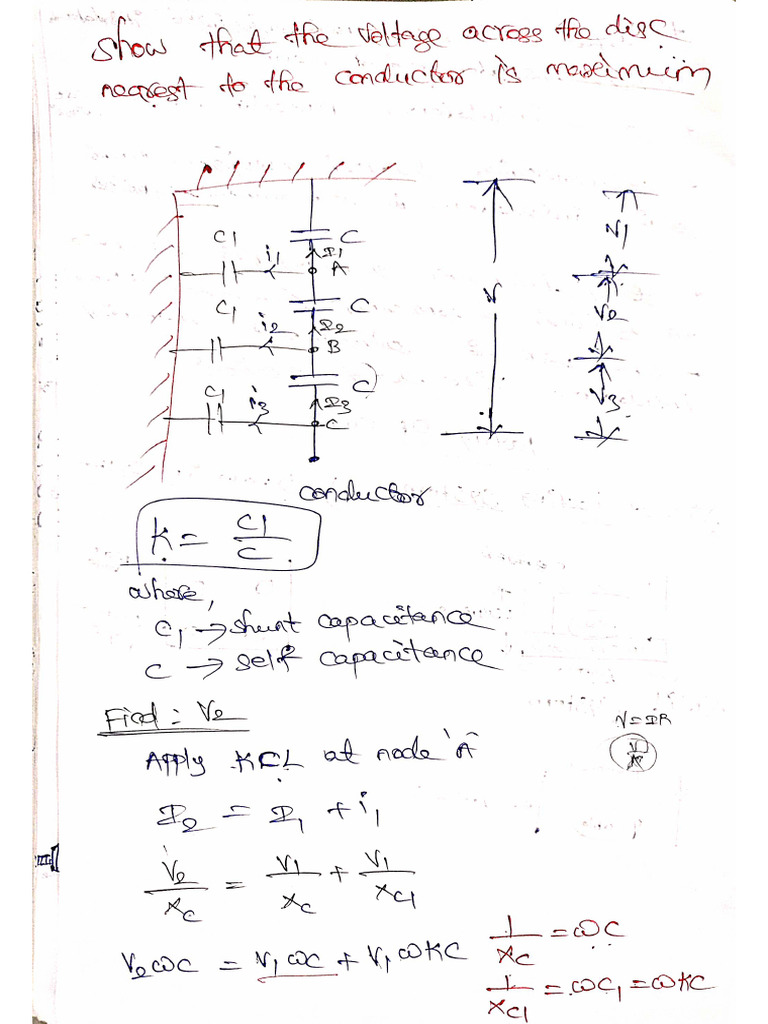 Show that the Voltage across the disc
nearest to the conductor is maximum
C1
C
I1
i1
A
C1
C
I2
i2
B
C1
C
I3
i3
C
V
V1
V2
V3
conductor
K = C1/C
where,
C1 → shunt capacitance
C → self capacitance
Find : V2
V = IR
V/R
Apply KCL at node 'A'
I2 = I1 + i1
V2/XC = V1/XC + V1/XC1
V2ωC = V1ωC + V1ωKC
1/XC = ωC
1/XC1 = ωC1 = ωKC